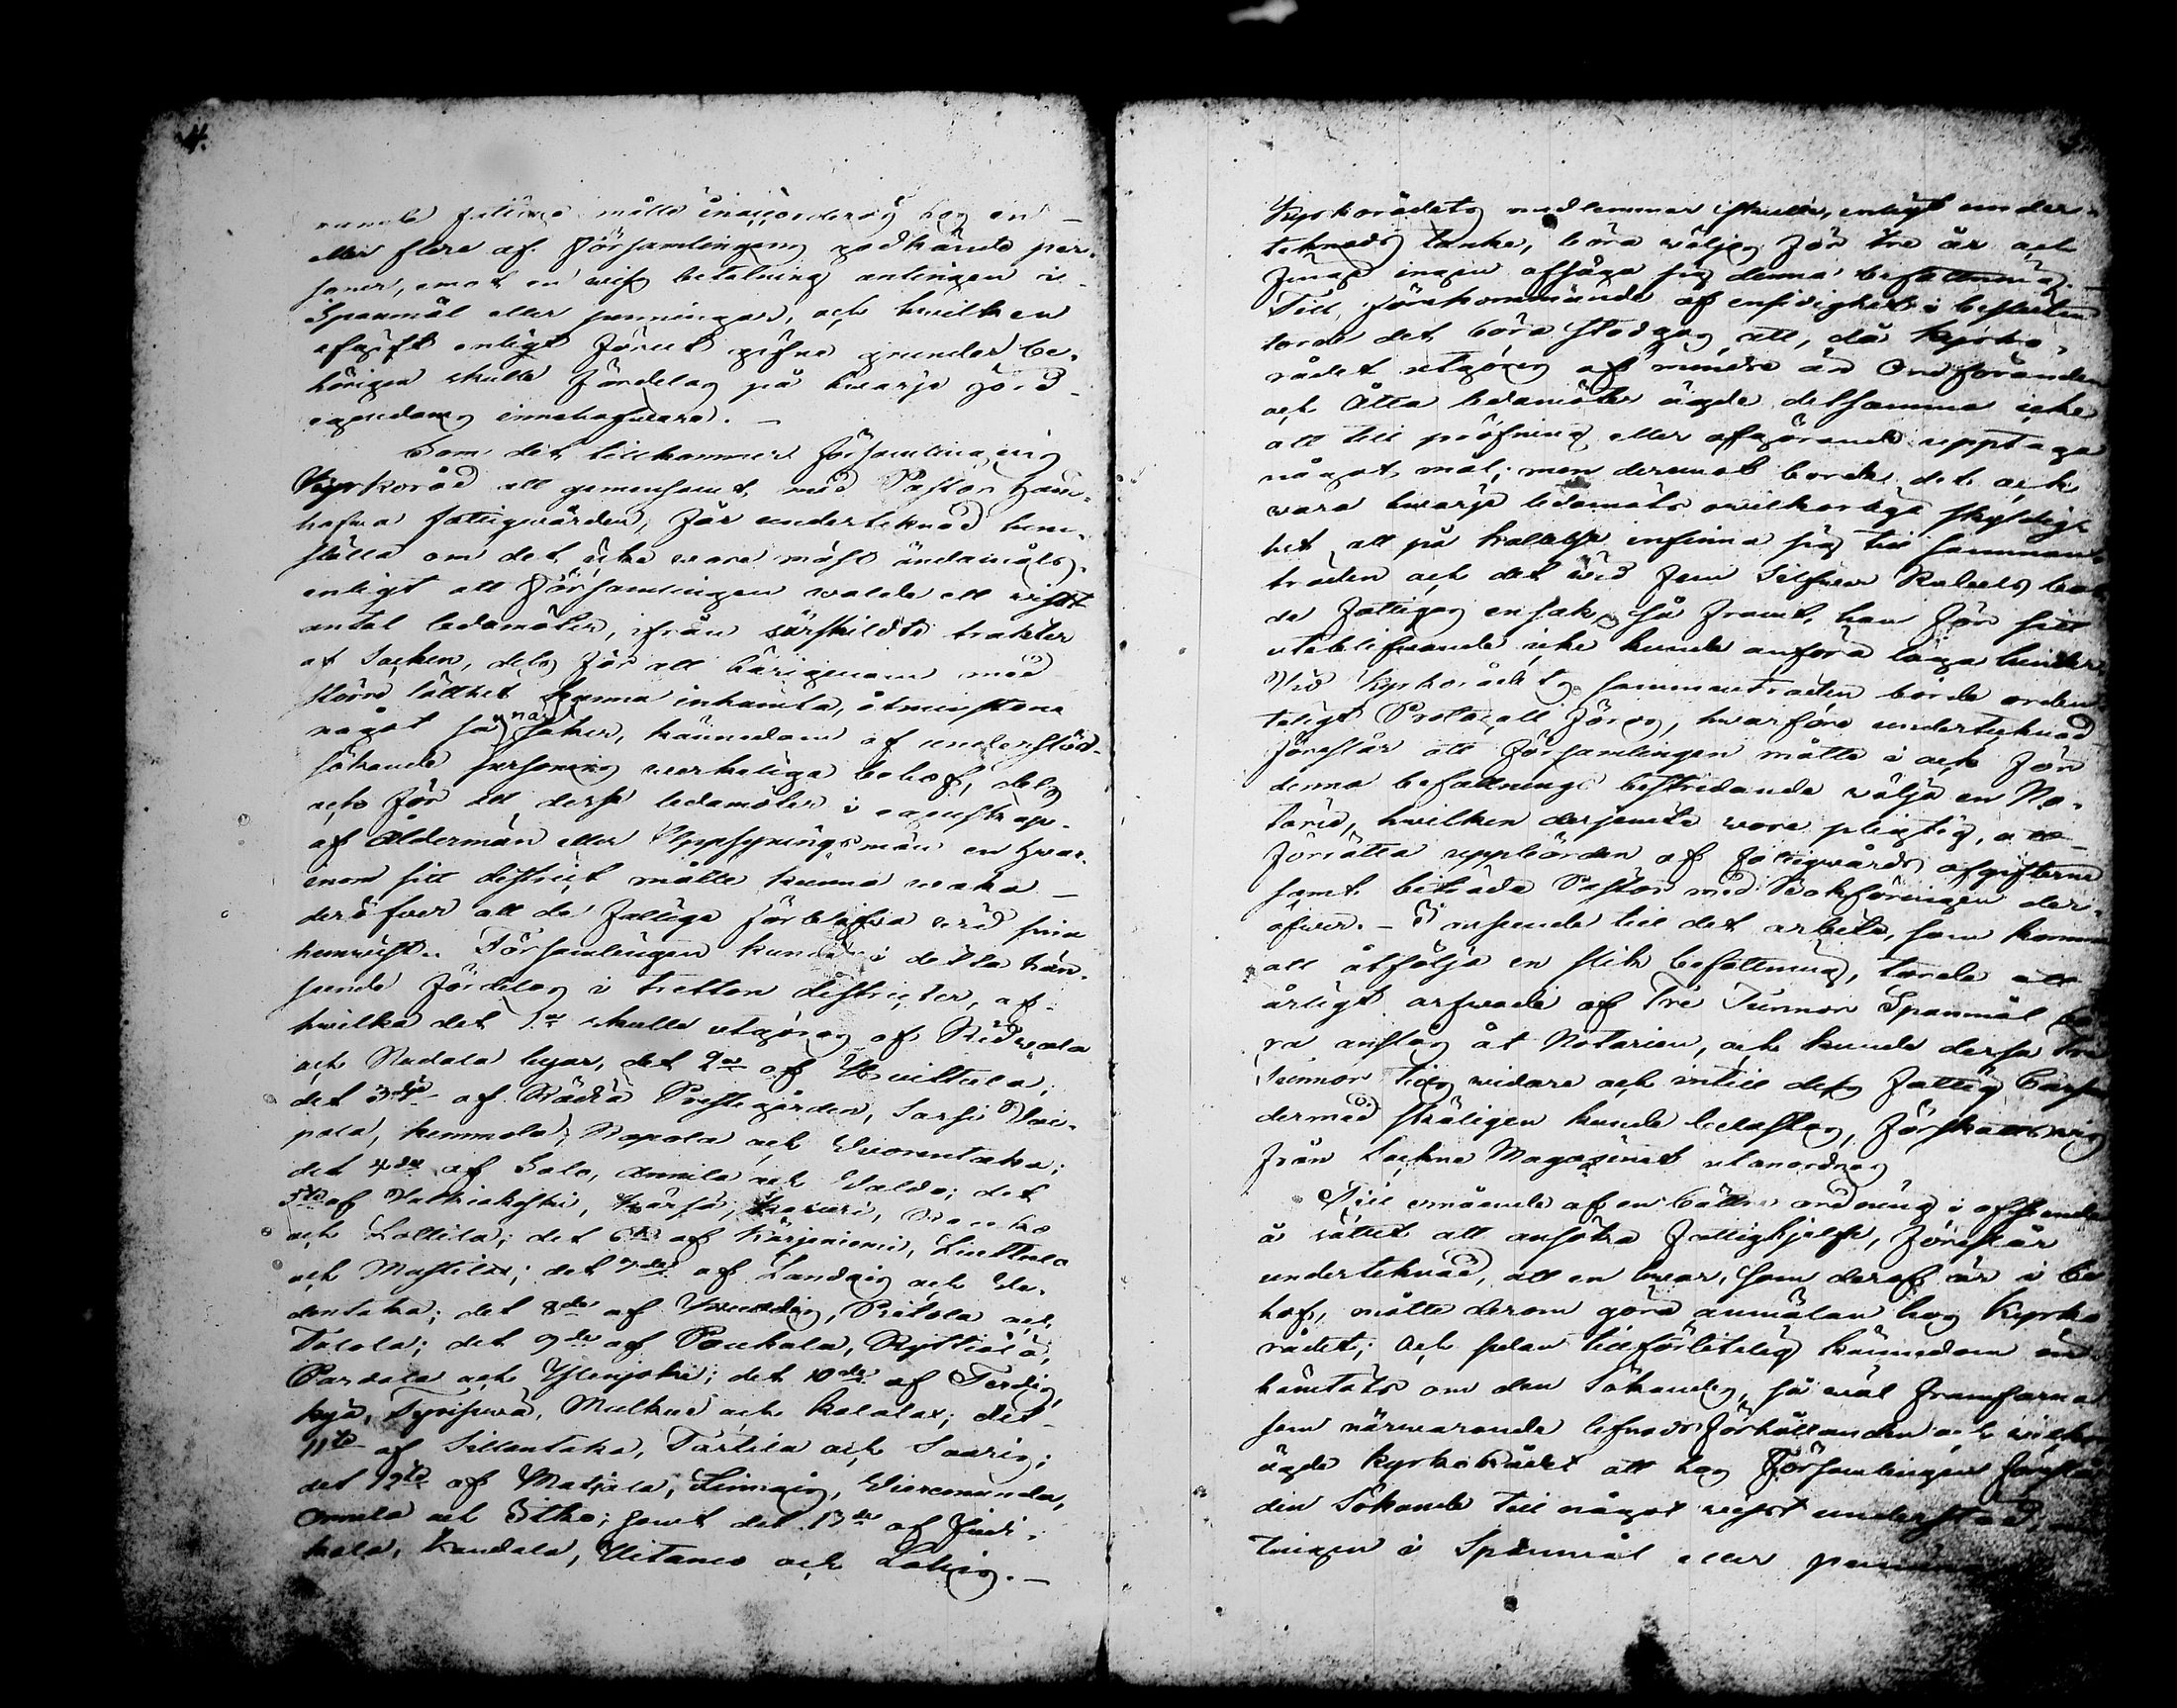 4.
fattige måtte inaccorderas hos en
eller flere af Församlingens godkände per-
soner, emot en wiss betalning antingen i
Spanmål eller penningar, och hwilken
afgift enligt förut gifne grunder be-
hörigen skulle fördelas på hwarje jord
egendoms innehafware. —
Som det tillkommer Församlingens
Kyrkoråd att gemensamt med Pastor han-
hafwa fattigwården, får undertecknad hem-
ställa om det icke wore mäst ändamåls-
enligt att Församlingen walde ett wisst
antal ledamöter, ifrån särskildte trakter
af Socken, dels för att härigenom med
större lätthet kunna inhämta, åtminstone
något så när säker, kännedom af understöd-
sökande personers werkeliga behof, dels
och för att desse ledamöter i egenskap
af Åldermän eller Uppsyningsmän en hwar
inom sitt district måtte kunna waka —
deröfwer att de fattige förblifwa wid sina
hemwist. Församlingen kunde i detta hän-
seende fördelas i tretton districter, af
hwilka det 1a skulle utgöras af Ridwala
och Nudala byar, det 2a af Huittula,
det 3dje af Rädia Prestegården, Sarsi Woi-
pala, Kemmola, Rapola och Wuorentaka;
det 4de af Salo, Annila och Waldo; det
5te af Walkiakoski, Kärsä,
och Lottila; det 6te af Kärjeniemi,
och Mustila; det 7de af Landais och We-
dentaka; det 8de af Ritola och
Talola; det 9de af Paukala, Ryttiälä,
Pardala och Ylenjoki; det 10de af
kyä, Tyrisewä, Mulkus och Kalalax; det
11te af Sillantaka, Tartila och Saaris;
det 12te af Matjala, Linnais, Wieremunda,
Annila och Itko; samt det 13de af Judi-
kala, Kandala, Uitamo och Lakis. —
Kyrkorådets medlemmar skulle, enligt under-
teknads tanke, böra wäljas för tre år och
finge ingen afsäga sig denna befattning. —
Till förekommande af ensidighet i besluten
torde det böra stadgas att, då Kyrko-
rådet utgöres af mindre än Ordföranden
och Åtta ledamöter ägde detsamma icke
att till pröfning eller afgörande upptaga
något mål; men deremot borde det och
wara hwarje ledamots owilkorliga skyldig-
het att på kallelse infinna sig till samman-
träden och det wid fem Silfwer Rubels bot
de fattigas ensak, så framt han för sitt
uteblifwande icke kunde anföra laga hinder
Wid Kyrkorådets sammanträden borde orden-
teligt Protocoll föras, hwarföre undertecknad
föreslår att Församlingen måtte i och för
denna befattnings bestridande wälja en No-
tarie, hwilken derjemte wore pligtig, att
förrätta uppbörden af fattigwårds afgifterna
samt biträda Pastor med Bokföringen der-
öfwer. — I anseende till det arbete, som komme
att åtfölja en slik befattning, torde ett
årligt arfwode af Tre Tunnor Spanmål bö-
ra anslås åt Notarien, och kunde dessa tre
Tunnor tills widare och intill dess fattig Cassan
dermed skäligen kunde belastas, förskottswis
från Sockne Magasinet utanordnas
Till winnande af en bättre ordning i afseende
å sättet att ansöka fattighjelp, föreslår
undertecknad, att en hwar, som deraf är i be-
hof, måtte derom göra anmälan hos Kyrko
rådet; och sedan tillförlitelig kännedom in-
hämtats om den Sökandes, så wäl framfarna
som närwarande lefnads förhållanden och wilkor
ägde Kyrkorådet att hos Församlingen föreslå
den Sökande till något wisst understöd, an-
tingen i Spanmål eller